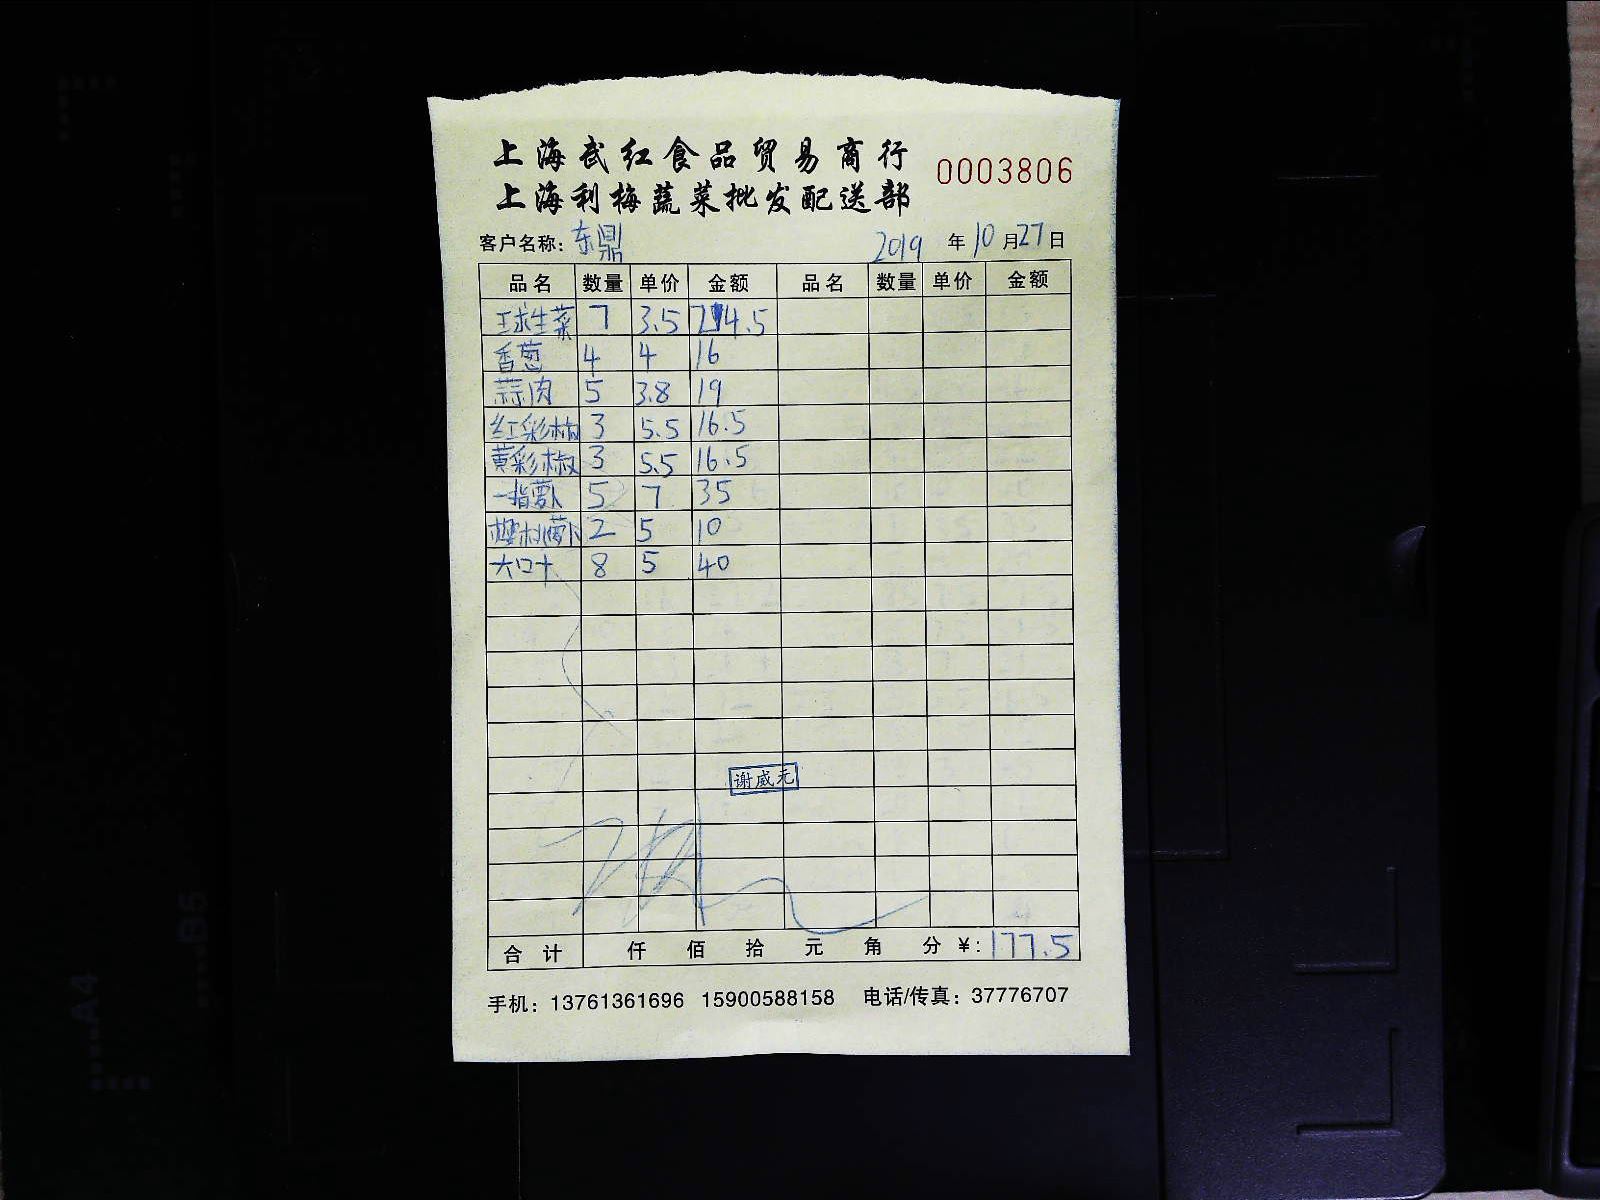 上海武红食品贸易商行
0003806
上海利梅蔬菜批发配送部
客户名称：东鼎 2019 年 10 月 27 日
品名 数量 单价 金额 品名 数量 单价 金额
球生菜 7 3.5 24.5
香葱 4 4 16
蒜肉 5 3.8 19
红彩椒 3 5.5 16.5
黄彩椒 3 5.5 16.5
一指萝卜 5 7 35
樱桃萝卜 2 5 10
大口十 8 5 40
谢威元
合计 仟 佰 拾 元 角 分 ¥: 177.5
手机：13761361696 15900588158 电话/传真：37776707
A4
B6